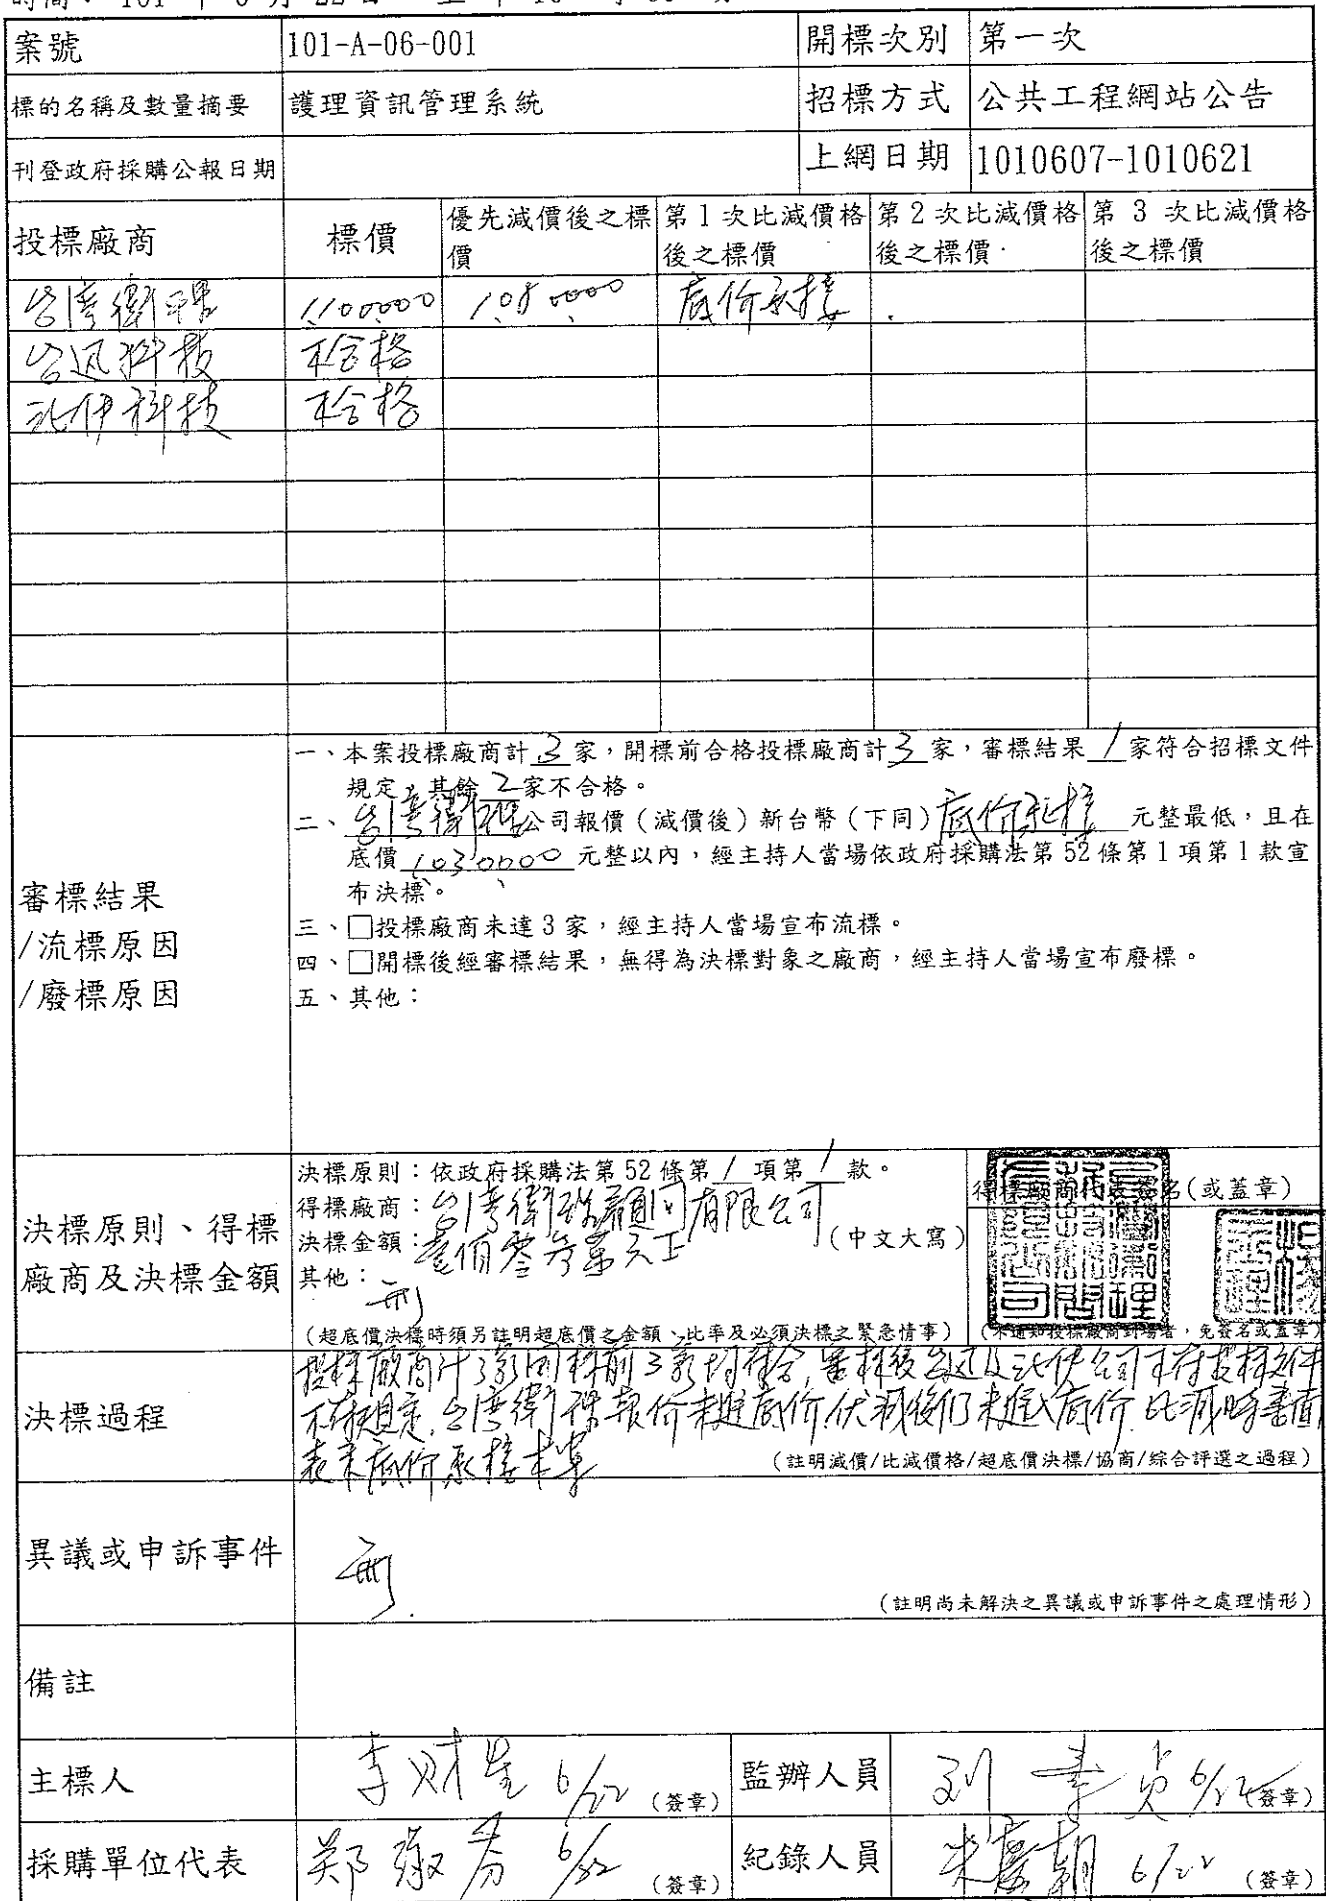 案號 101-A-06-001 開標次別 第一次
標的名稱及數量摘要 護理資訊管理系統 招標方式 公共工程網站公告
刊登政府採購公報日期 上網日期 1010607-1010621
投標廠商 標價 優先減價後之標價 第1次比減價格後之標價 第2次比減價格後之標價 第3次比減價格後之標價
台灣衛理 1,100,000 1,080,000 底价承接
台迅科技 不合格
科技 不合格
審標結果
/流標原因
/廢標原因
一、本案投標廠商計3家，開標前合格投標廠商計3家，審標結果1家符合招標文件
規定，其餘2家不合格。
二、台灣衛理公司報價（減價後）新台幣（下同）底价承接元整最低，且在
底價1,030,000元整以內，經主持人當場依政府採購法第52條第1項第1款宣
布決標。
三、□投標廠商未達3家，經主持人當場宣布流標。
四、□開標後經審標結果，無得為決標對象之廠商，經主持人當場宣布廢標。
五、其他：
決標原則、得標
廠商及決標金額
決標原則：依政府採購法第52條第1項第1款。
得標廠商：台灣衛理顧問有限公司
決標金額：壹佰零參萬元正（中文大寫）
其他：
無
（超底價決標時須另註明超底價之金額、比率及必須決標之緊急情事）
得標廠商代表簽名(或蓋章)
（未通知投標廠商到場者，免簽名或蓋章）
決標過程
投標廠商計3家開標前3家均符合,審標後台迅及公司
台灣衛理報价未進底价,优減後仍未進入底价,比減時書面
表示底价承接本案
（註明減價/比減價格/超底價決標/協商/綜合評選之過程）
異議或申訴事件
無
（註明尚未解決之異議或申訴事件之處理情形）
備註
主標人 李財星 6/22 （簽章） 監辦人員 劉素貞 6/22 （簽章）
採購單位代表 鄭 芬 6/22 （簽章） 紀錄人員 朝 6/22 （簽章）